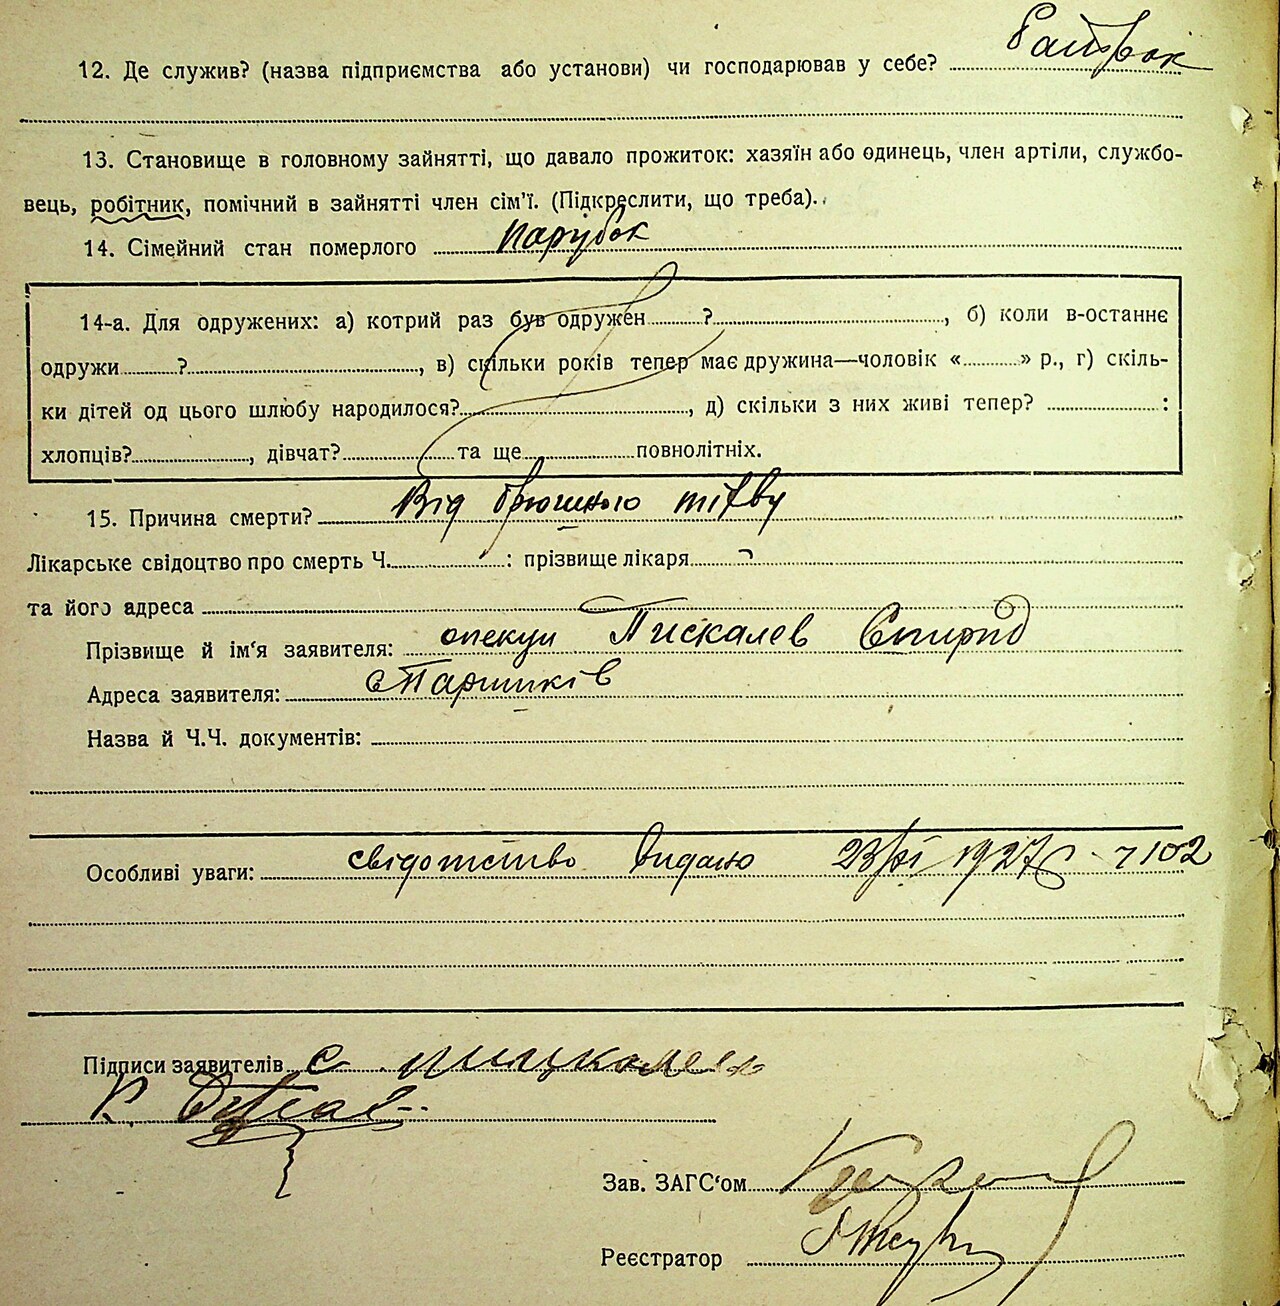 12. Де служив? (назва підприємства або установи) чи господарював у себе?
13. Становище в головному зайнятті, що давало прожиток: хазяїн або одинець, член артіли, службо-
вець, робітник, помічний в зайнятті член сім'ї. (Підкреслити, що треба).
14. Сімейний стан померлого парубок
14-а. Для одружених: а) котрий раз був одружен ?, б) коли в-останнє
одружи ?, в) скільки років тепер має дружина—чоловік « » р., г) скіль-
ки дітей од цього шлюбу народилося?, д) скільки з них живі тепер? :
хлопців?, дівчат? та ще повнолітніх.
15. Причина смерти? Від брюшного тіфву
Лікарське свідоцтво про смерть Ч. : прізвище лікаря
та його адреса
Прізвище й ім'я заявителя: опекун Пискалев Спирид
Адреса заявителя:
Назва й Ч.Ч. документів:
Особливі уваги: свідотство видано 23/XI 1927 102
Підписи заявителів С
К
Зав. ЗАГС'ом
Реєстратор